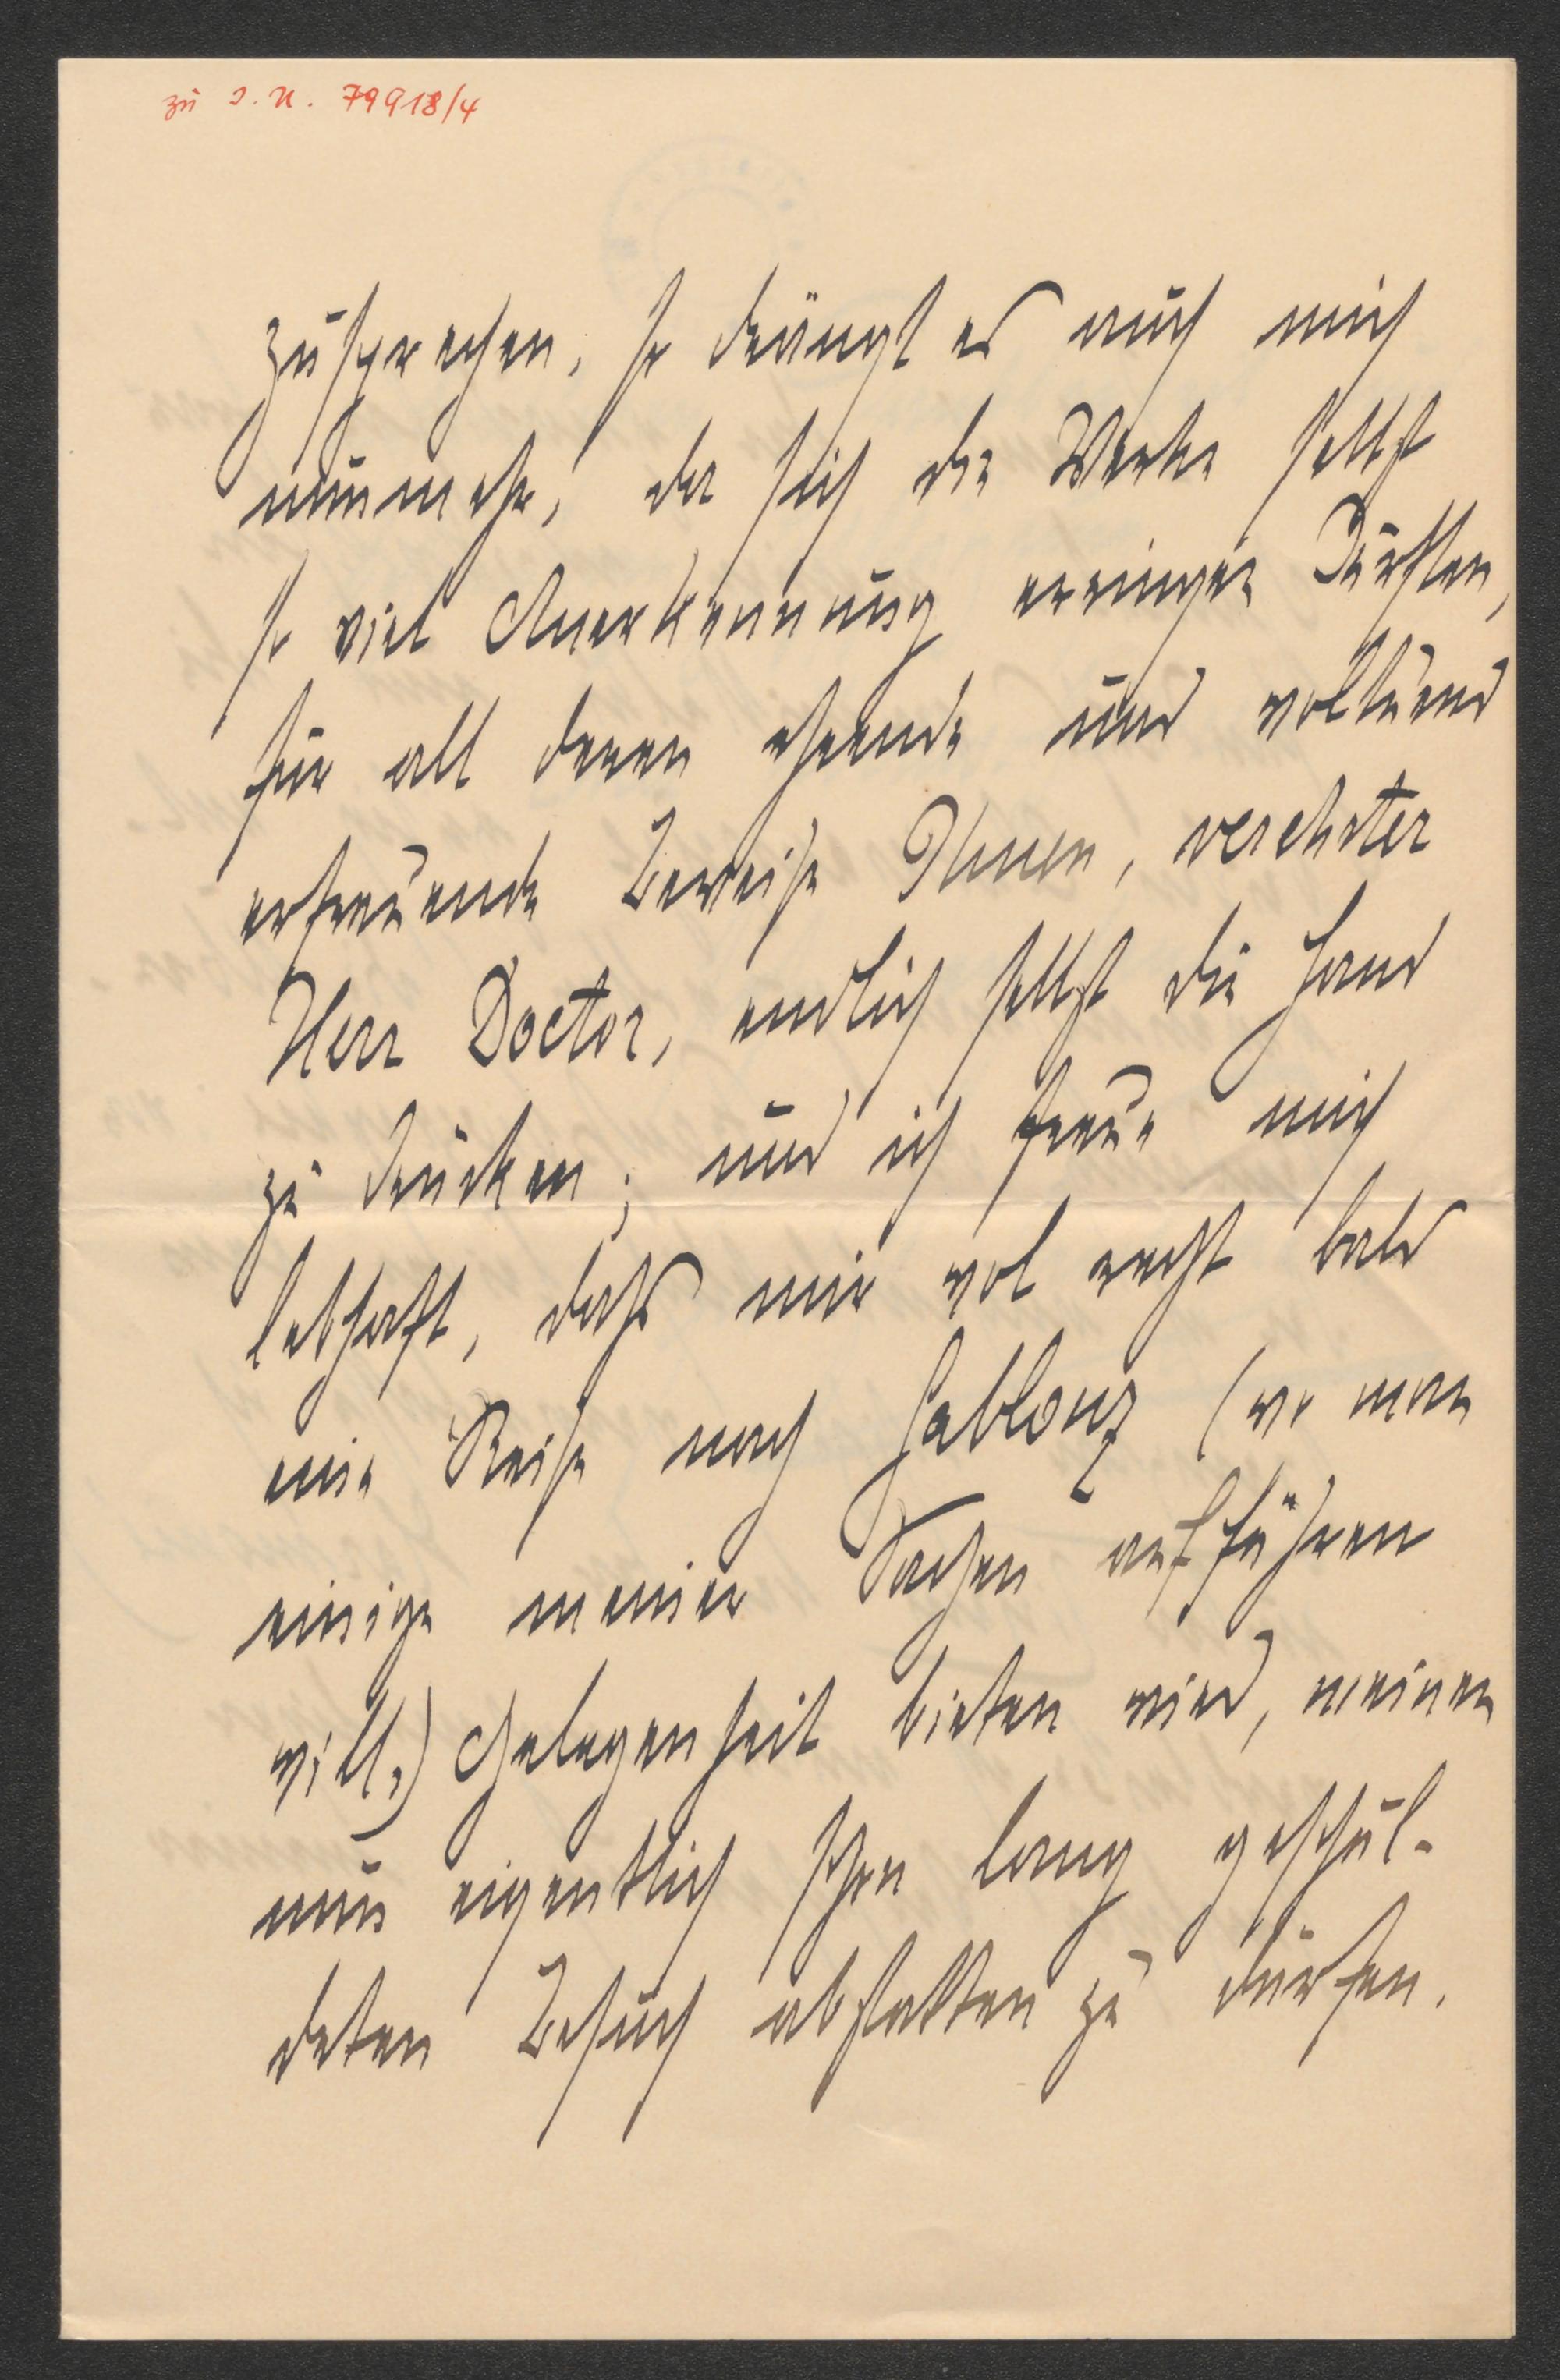 zu I.N. 79918/4
zusprechen, so drängt es auch mich
nunmehr, da sich die Werke selbst
so viel Anerkennung erringen durften,
für all deren ehrende und woltuend
erfreuende Beweise Ihnen, verehrter
Herr Doctor, endlich selbst die Hand
zu drücken; und ich freue mich
lebhaft, dass mir wol recht bald
eine Reise nach Gablonz (wo man
einige meiner Sachen aufführen
will,) Gelegenheit bieten wird, meinen
nun eigentlich schon lang geschul-
deten Besuch abstatten zu dürfen.